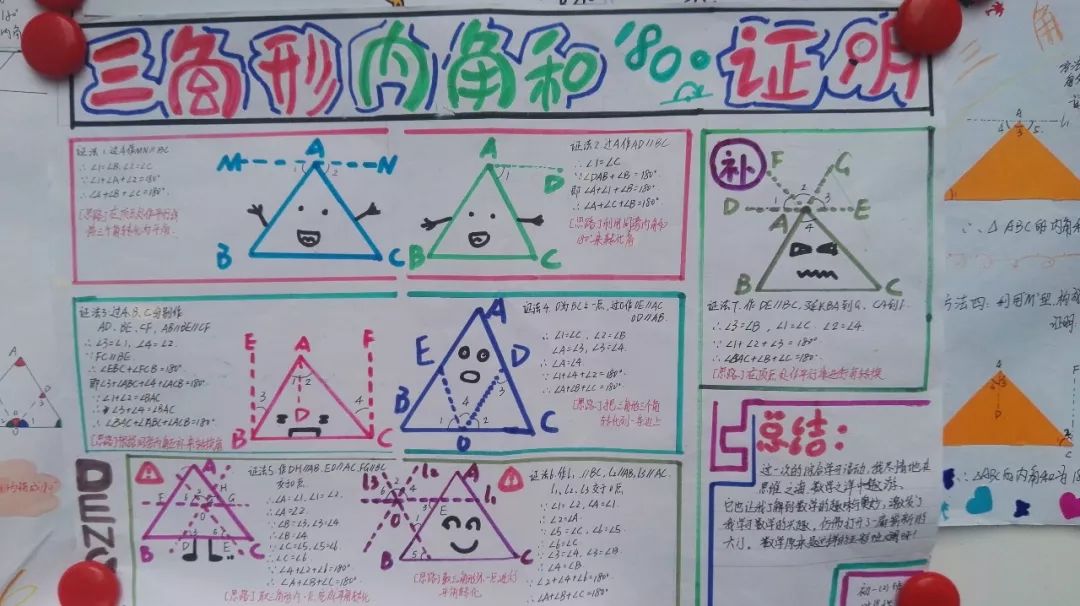 三角形内角和180°证明
证法1:过A作MN∥BC
∴∠1=∠B,∠2=∠C
∵∠1+∠A+∠2=180°
∴∠A+∠B+∠C=180°
[思路]在顶点处作平行线
将三个角转化为平角.
M A N
1 2
B C
证法2.过A作AD∥BC
∴∠1=∠C
∵∠DAB+∠B=180°
即∠A+∠1+∠B=180°
∴∠A+∠C+∠B=180°
[思路]利用同旁内角和
180°来转化角
A
1
D
B C
补
F G
D E
1 2 3
A
4
B C
证法7.作DE∥BC,延长BA到G,CA到F.
∴∠3=∠B,∠1=∠C ∠2=∠4.
∵∠1+∠2+∠3=180°
∴∠BAC+∠B+∠C=180°
证法3:过A.B.C分别作
AD.BE.CF,AD∥BE∥CF
∴∠3=∠1,∠4=∠2.
∵FC∥BE.
∴∠EBC+∠FCB=180°
即∠3+∠ABC+∠4+∠ACB=180°
∵∠1+∠2=∠BAC
∴∠3+∠4=∠BAC
∴∠BAC+∠ABC+∠ACB=180°
E A F
1 2
D
3 4
B C
证法4.D为BC上一点,过D作DE∥AC
DD∥AB.
∴∠1=∠C,∠2=∠B
∠A=∠3,∠3=∠4
∴∠A=∠4
∵∠1+∠4+∠2=180°
∴∠A+∠B+∠C=180°
[思路]把三角形三个角
转化到一条边上
A
E D
3
4
1 2
B D C
总结:
这一次的综合学习活动,我尽情地在
思维之海,数学之洋中遨游.
它也让我了解到数学的趣味与奥妙,激发了
我学习数学的兴趣,仿佛打开了一扇崭新的
大门.
证法5:作DH∥AB,ED∥AC,FG∥BC
交于O点
∴∠A=∠1,∠1=∠2.
∴∠A=∠2
∵∠B=∠3,∠3=∠4
∴∠B=∠4
∵∠C=∠5,∠5=∠6
∴∠C=∠6
∵∠4+∠2+∠6=180°
∴∠A+∠B+∠C=180°
A
H
F G
O
B D E C
证法6.作l₁∥BC,l₂∥AB,l₃∥AC
l₁,l₂,l₃交于O点.
∴∠1=∠2,∠A=∠1.
∴∠2=∠A
∵∠5=∠C,∠6=∠5.
∴∠6=∠C
∵∠3=∠4,∠3=∠B
∴∠4=∠B
∵∠2+∠4+∠6=180°
∴∠A+∠B+∠C=180°
l₃ l₂ A
l₁
E
B C
DENG
角
A
4 3 5
∴△ABC的内角和
方法四:利用"M"型,构
证明
A
D
C
∴△ABC的内角和为18
A